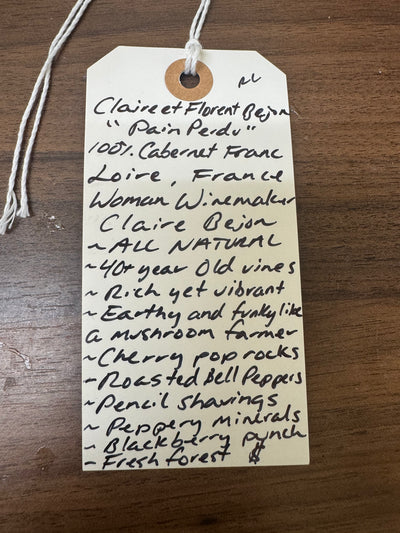 Claire et Florent Bejon
"Pain Perdu"
100% Cabernet Franc
Loire, France
Woman Winemaker
Claire Bejon
~ ALL NATURAL
~ 40+ year Old vines
~ Rich yet vibrant
~ Earthy and funky like
a mushroom farmer
~ Cherry pop rocks
~ Roasted Bell Peppers
~ Pencil shavings
~ Peppery minerals
~ Blackberry punch
~ Fresh forest $